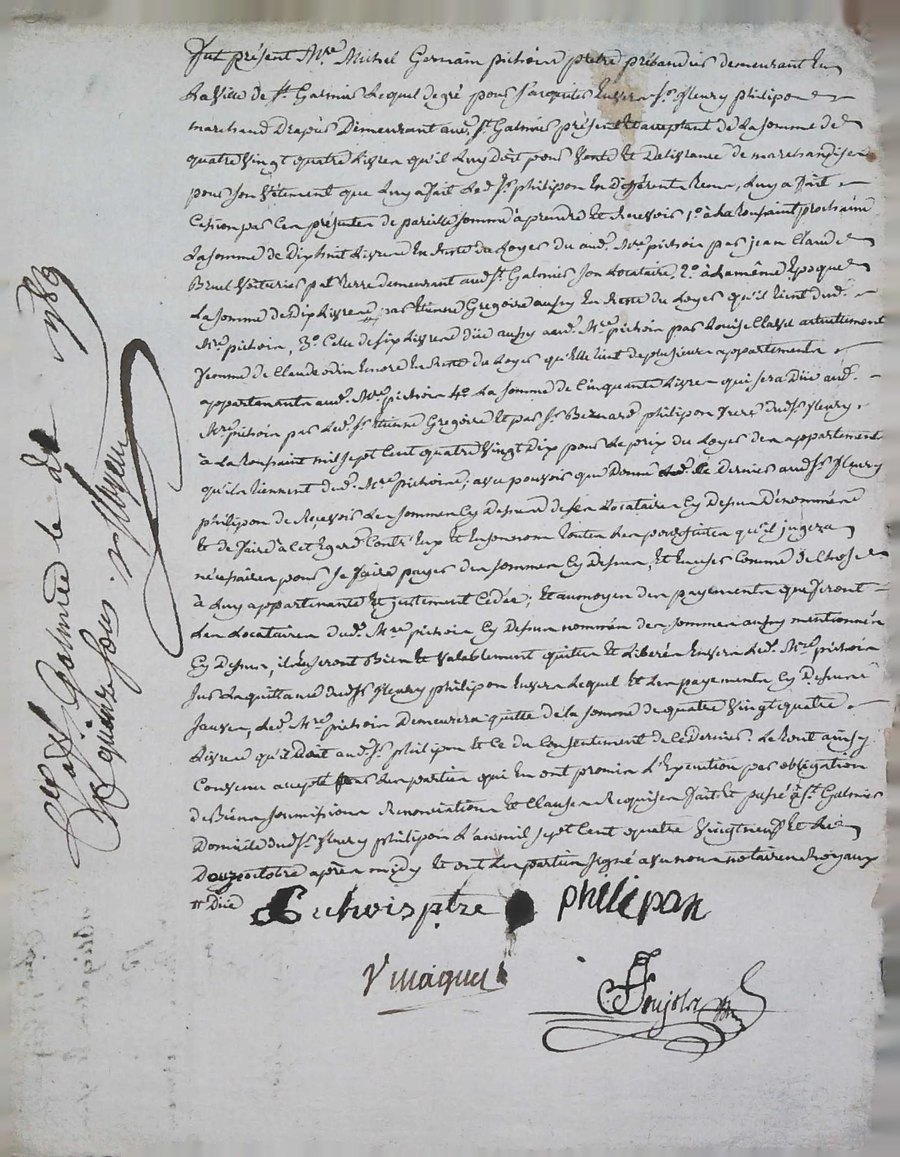 fut présent Mre. Michel Germain pichoire pretre prébandier demeurant En
La ville de st. Galmier Lequel de gré pour s'acquiter Envers sr. fleury philipon
marchand Drapier Demeurant aud. st. Galmier présent et acceptant de La somme de
quatre vingt quatre Livres qu'il Luy doit pour vente et Délivrance de marchandises
pour son vêtement que Luy a fait Led. sr. philipon En différents tems, Luy a fait
Cession par Ces présentes de pareille somme à prendre et Recevoir 1º. à La toussaint prochaine
La somme de dix huit Livres En reste du Loyer du aud. Mre. pichoir par jean Claude
Bruel voiturier par terre demeurant aud. st. Galmier son Locataire, 2º. à La même Epoque
La somme de dix Livres par Etienne Gregoire aussy En Reste du Loyer qu'il tient dud.
Mre. pichoir, 3º. Celle de six Livres düe aussy aud. Mre. pichoir par Louise actuellement
femme de Claude odin Encore En reste du Loyer qu'Elle tient de plusieurs appartements
appartenants aud. Mre. pichoir 4º. La somme de Cinquante Livres qui sera düe aud.
Mre. pichoir par Led. sr. Etienne Gregoire et par sr. Bernard philipon frere dud. sr. fleury
à La toussaint mil sept Cent quatre vingt Dix pour Le prix du Loyer des appartements
qu'ils tiennent dud. Mre. pichoire; avec pouvoir que Donne Ce dernier aud. sr. fleury
philipon de Recevoir Les sommes Cy Dessus de ses Locataires Cy Dessus Dénommés
et de faire à Cet Egard Contr'Eux et En son nom toutes Les poursuites qu'il jugera
nécessaires pour se faire payer des sommes Cy Dessus, Et En user Comme de Chose
à Luy appartenante Et justement Cédée; Et au moyen des payements que feront
Les Locataires dud. Mre. pichoir Cy Dessus nommés des sommes aussy mentionnées
Cy Dessus, ils En seront Bien et valablement quittes et Libérés Envers Led. Mre. pichoir
sur La quittance dud. sr. fleury philipon Envers Lequel Et Les payements Cy Dessus
Led. Mre. pichoir Demeurera quitte de La somme de quatre vingt quatre
Livres qu'il Doit aud. sr. philipon et Ce du Consentement de Ce Dernier. Le tout ainsy
Convenu accepté par Les parties qui En ont promis L'Execution par obligation
de Biens soumissions Renonciations Et Clauses Requises fait et passé à st. Galmier
Domicile dud. sr. fleury philipon L'an mil sept Cent quatre vingt neuf Et Le
Douze octobre après midy Et ont Les parties signé avec nous notaires Royaux
düe
pichoir ptre philipon
Vmaquet
st Galmier le 1789
quinze sous